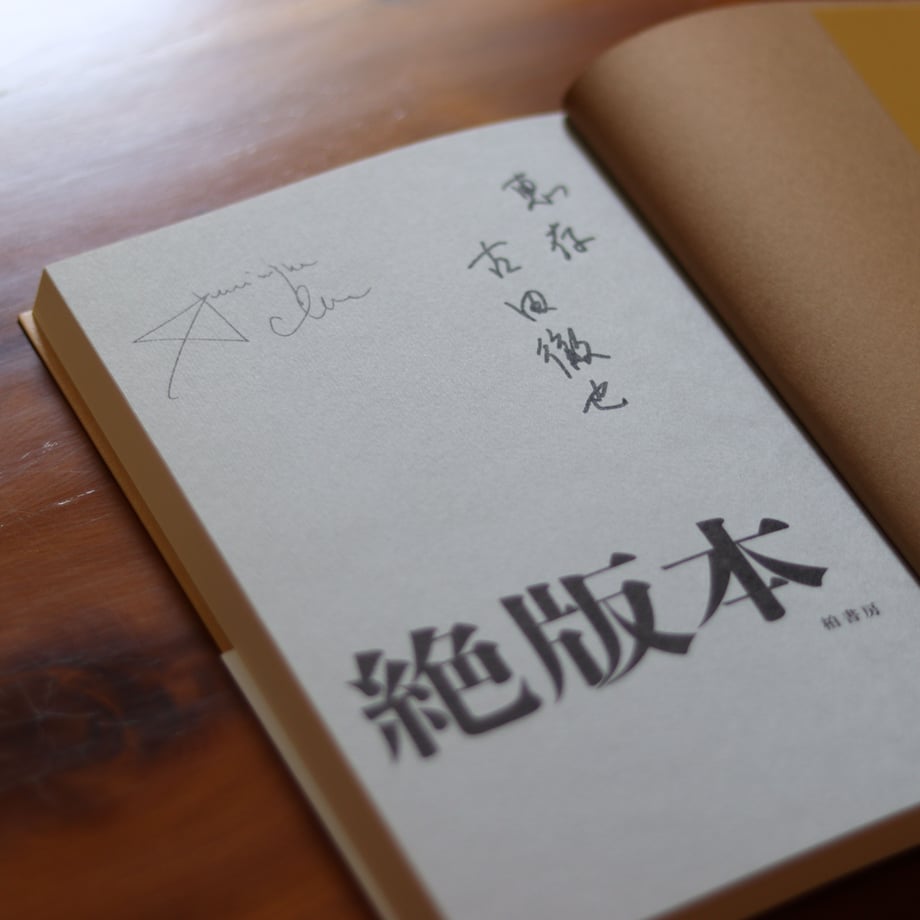 恵存
古田徹也
Dominique
Chen
絶版本
柏書房